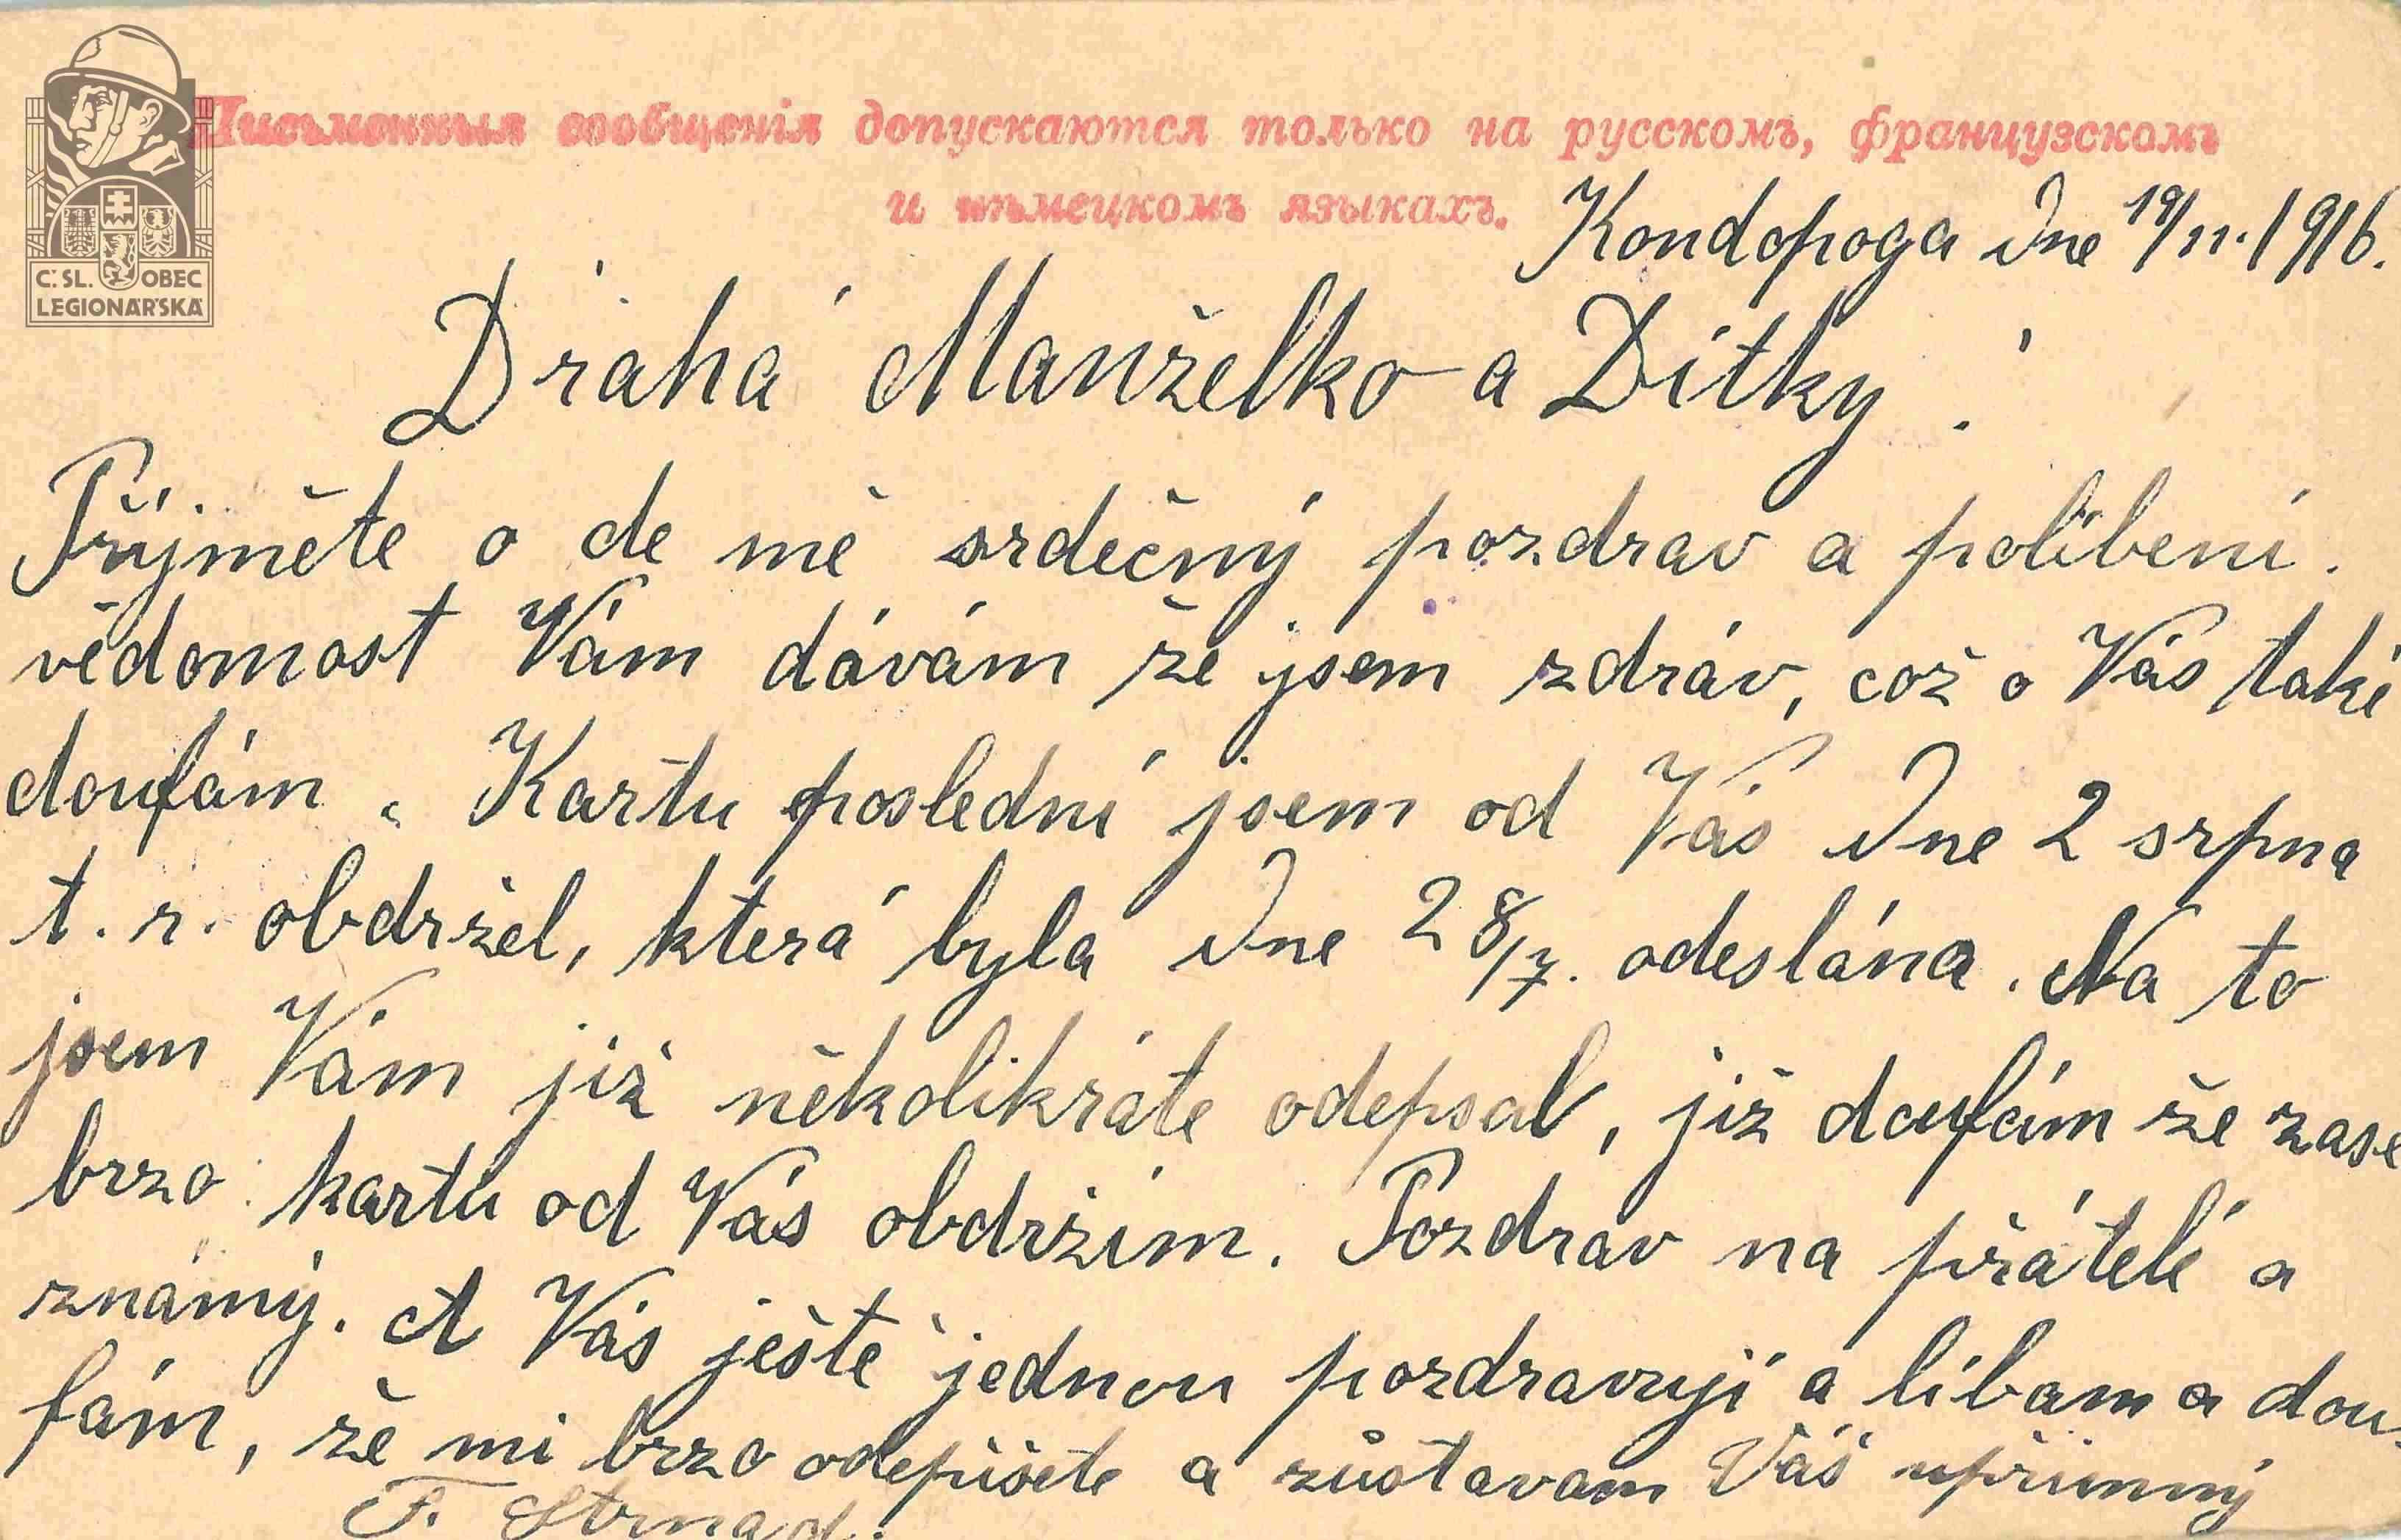 Письменныя сообщенія допускаются только на русскомъ, французскомъ
и нѣмецкомъ языкахъ.
Kondopoga dne 19/11. 1916.
Č.SL. OBEC
LEGIONÁŘSKÁ
Drahá Manželko a Dítky!
Příjměte o de mě srdečný pozdrav a políbení.
vědomost Vám dávám že jsem zdráv, což o Vás také
doufám. Kartu poslední jsem od Vás dne 2 srpna
t. r. obdržel, která byla dne 28/7. odeslána. Na to
jsem Vám již několikráte odepsal, již doufám že zase
brzo kartu od Vás obdržím. Pozdrav na přátelé a
známý. A Vás ještě jednou pozdravuji a líbam a dou-
fám, že mi brzo odepíšete a zůstavam Váš upřímný
F. Strnad.